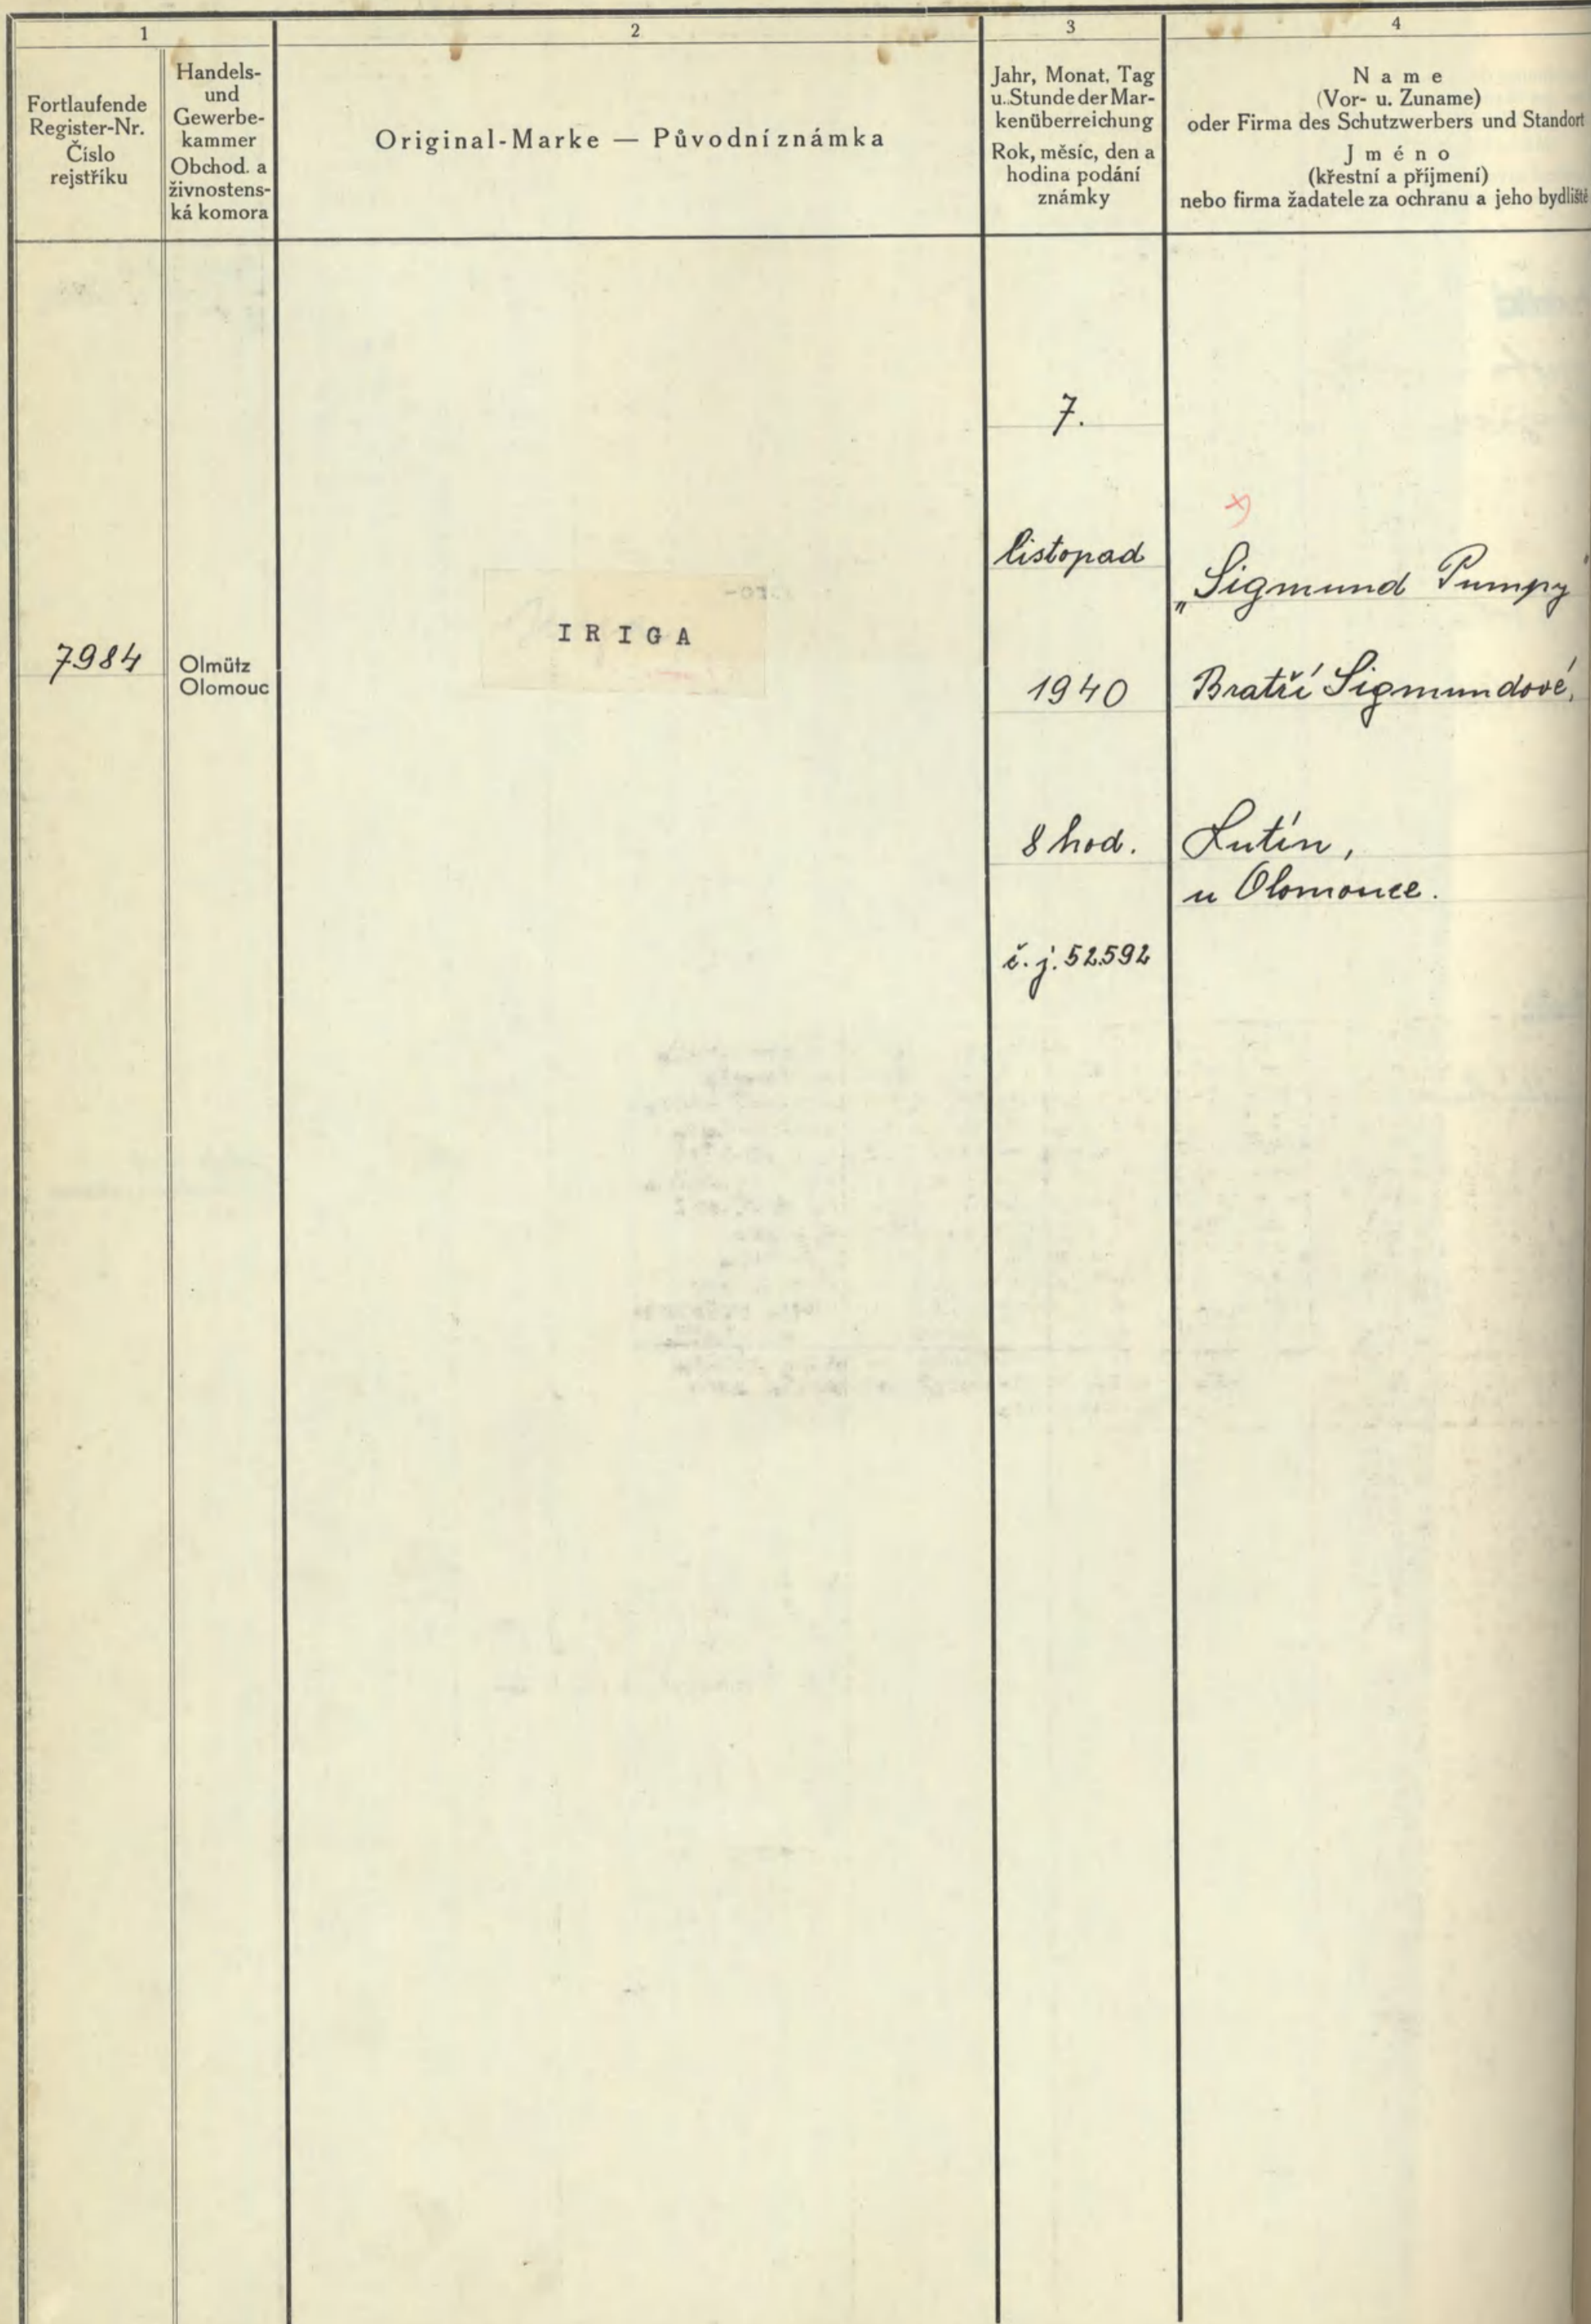 1
2
3
4
Fortlaufende
Register-Nr.
Číslo
rejstříku
Handels-
und
Gewerbe-
kammer
Obchod. a
živnostens-
ká komora
Original-Marke — Původní známka
Jahr, Monat, Tag
u. Stunde der Mar-
kenüberreichung
Rok, měsíc, den a
hodina podání
známky
Name
(Vor- u. Zuname)
oder Firma des Schutzwerbers und Standort
Jméno
(křestní a příjmení)
nebo firma žadatele za ochranu a jeho bydliště
7984
Olmütz
Olomouc
IRIGA
7.
listopad
1940
8 hod.
č. j. 52592
x)
„Sigmund Pumpy"
Bratří Sigmundové,
Lutín,
u Olomouce.